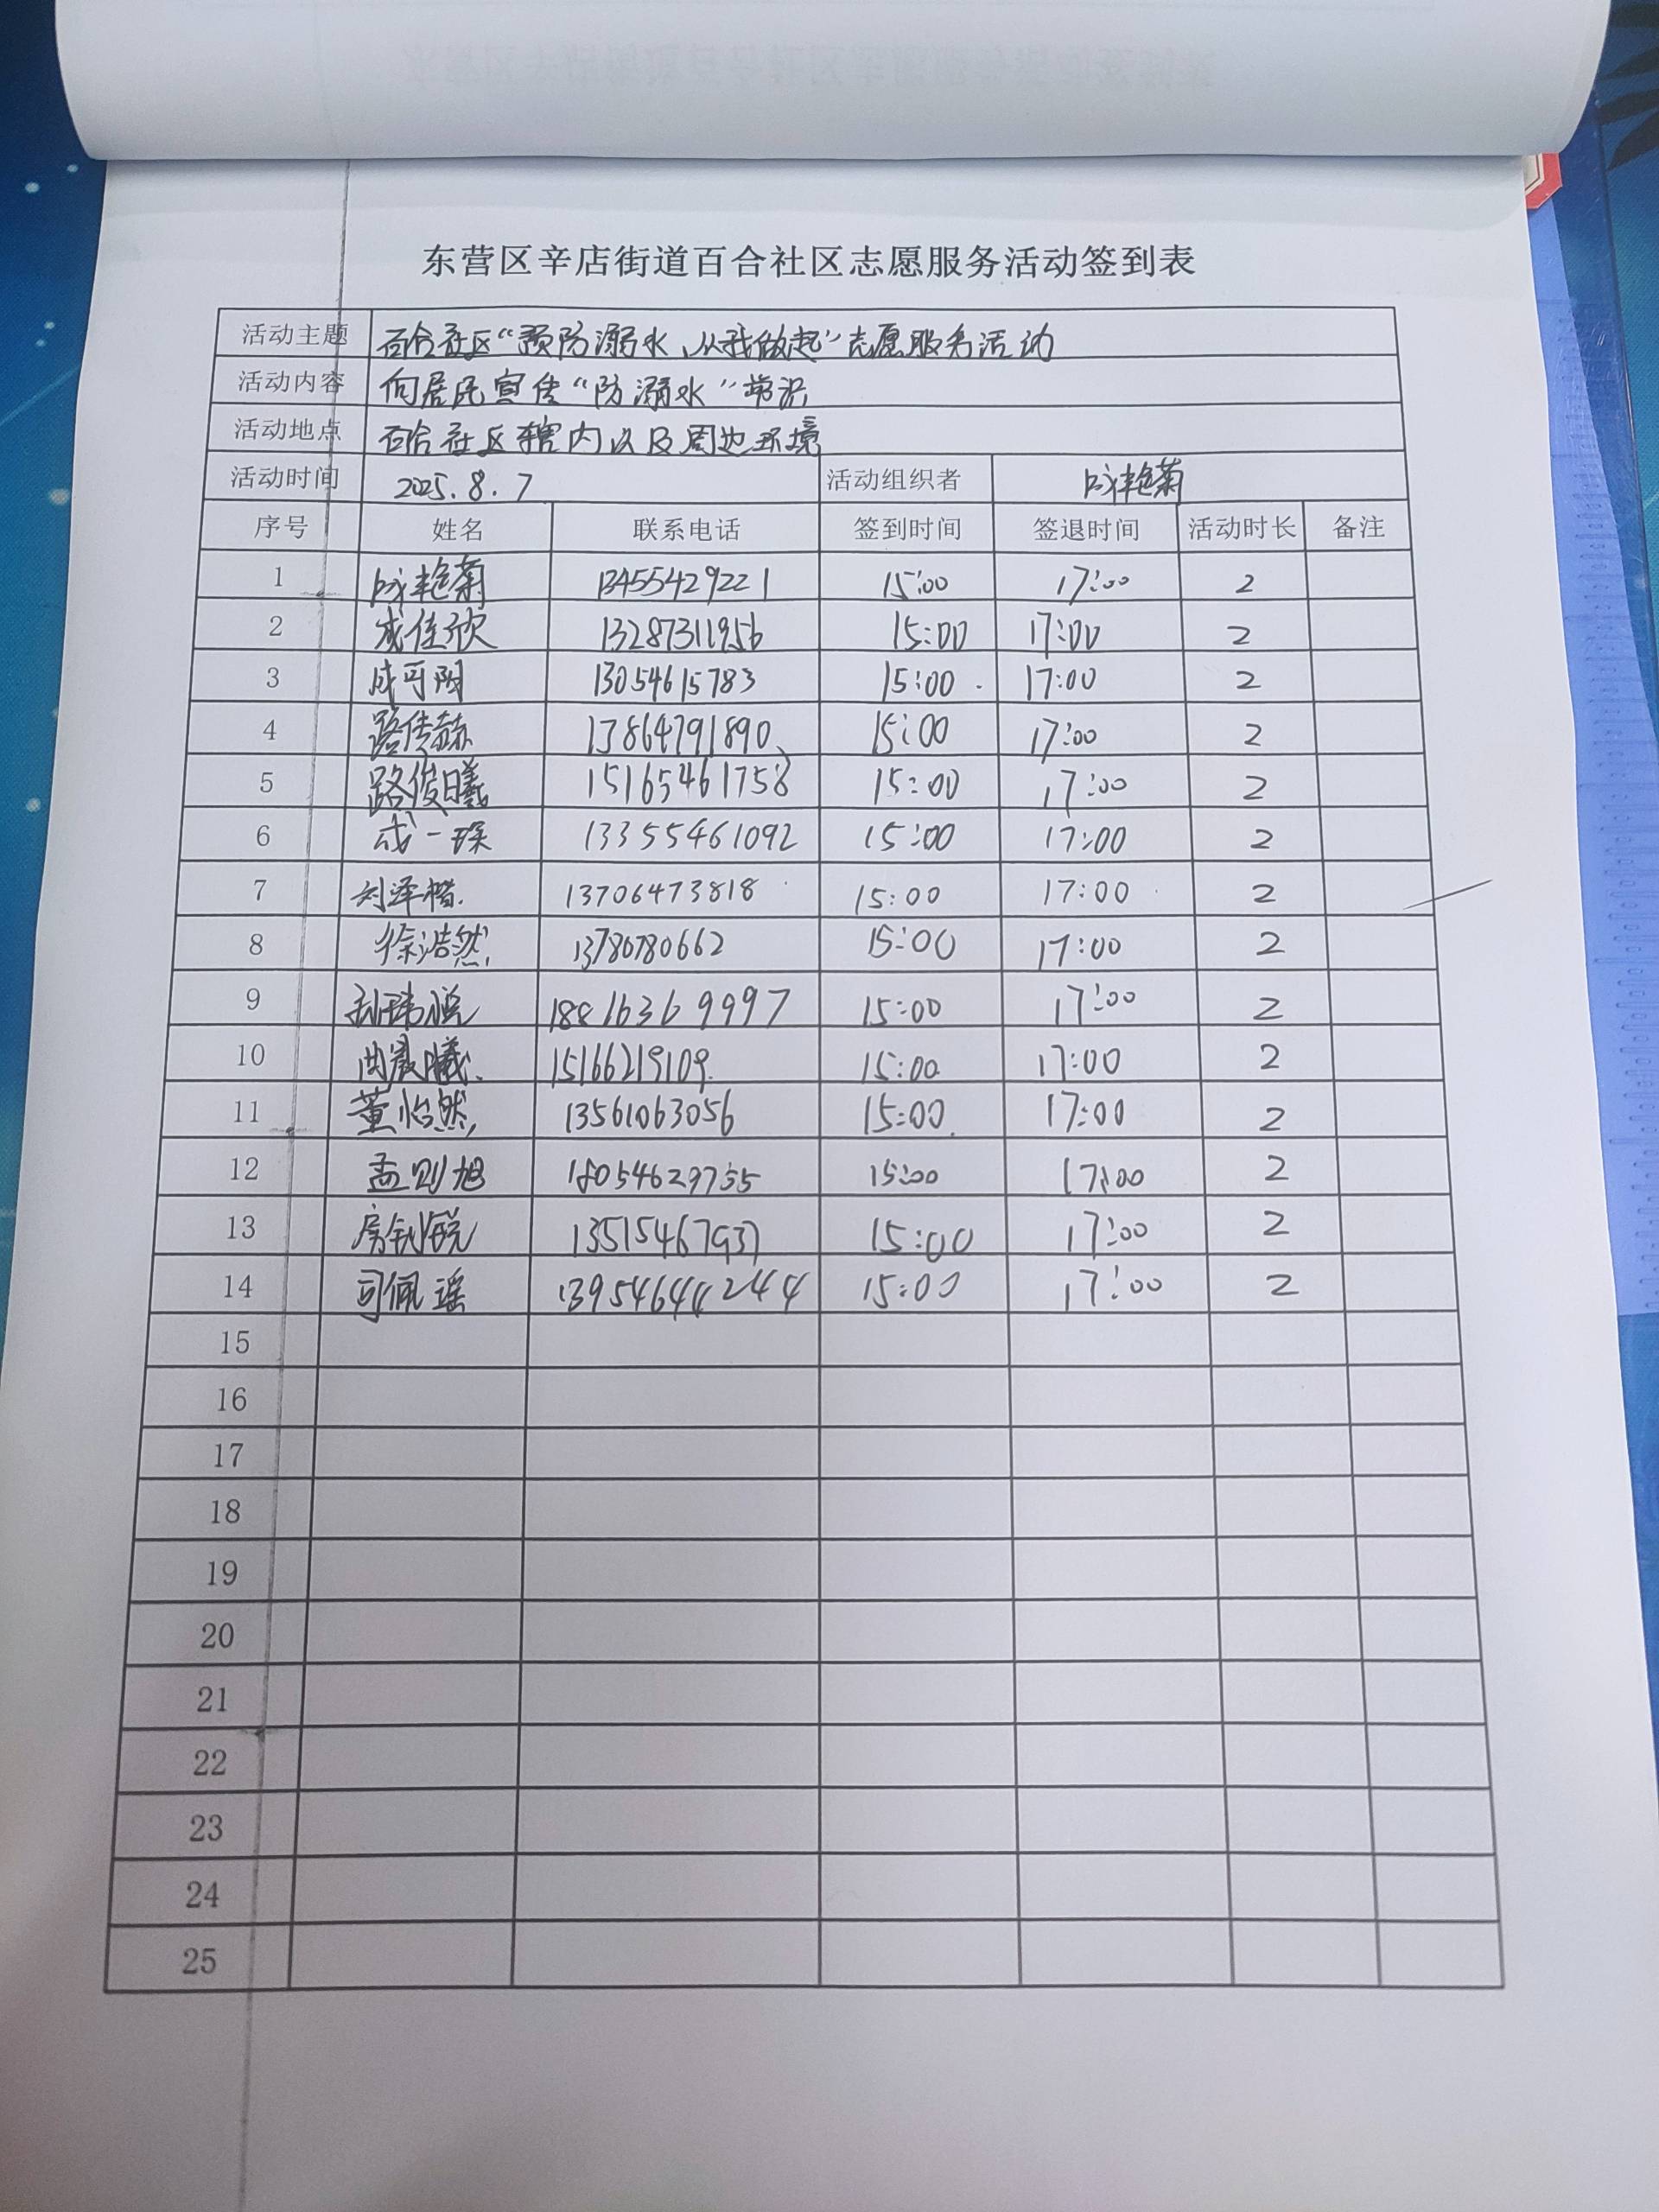 东营区辛店街道百合社区志愿服务活动签到表
活动主题 百合社区“预防溺水、从我做起”志愿服务活动
活动内容 向居民宣传“防溺水”常识
活动地点 百合社区辖内以及周边环境
活动时间 2025.8.7 活动组织者 成艳菊
序号 姓名 联系电话 签到时间 签退时间 活动时长 备注
1 成艳菊 13455429221 15:00 17:00 2
2 成佳欣 13287311956 15:00 17:00 2
3 成可阳 13054615783 15:00 17:00 2
4 路传赫 13864791890 15:00 17:00 2
5 路俊曦 15165461758 15:00 17:00 2
6 成一琛 13355461092 15:00 17:00 2
7 刘泽楷 13706473818 15:00 17:00 2
8 徐浩然 13780780662 15:00 17:00 2
9 15:00 17:00 2
10 尚晨曦 15166219109 15:00 17:00 2
11 董怡然 13561063056 15:00 17:00 2
12 孟则旭 18054629755 15:00 17:00 2
13 房钊锐 13515467937 15:00 17:00 2
14 司佩瑶 13954644244 15:00 17:00 2
15
16
17
18
19
20
21
22
23
24
25